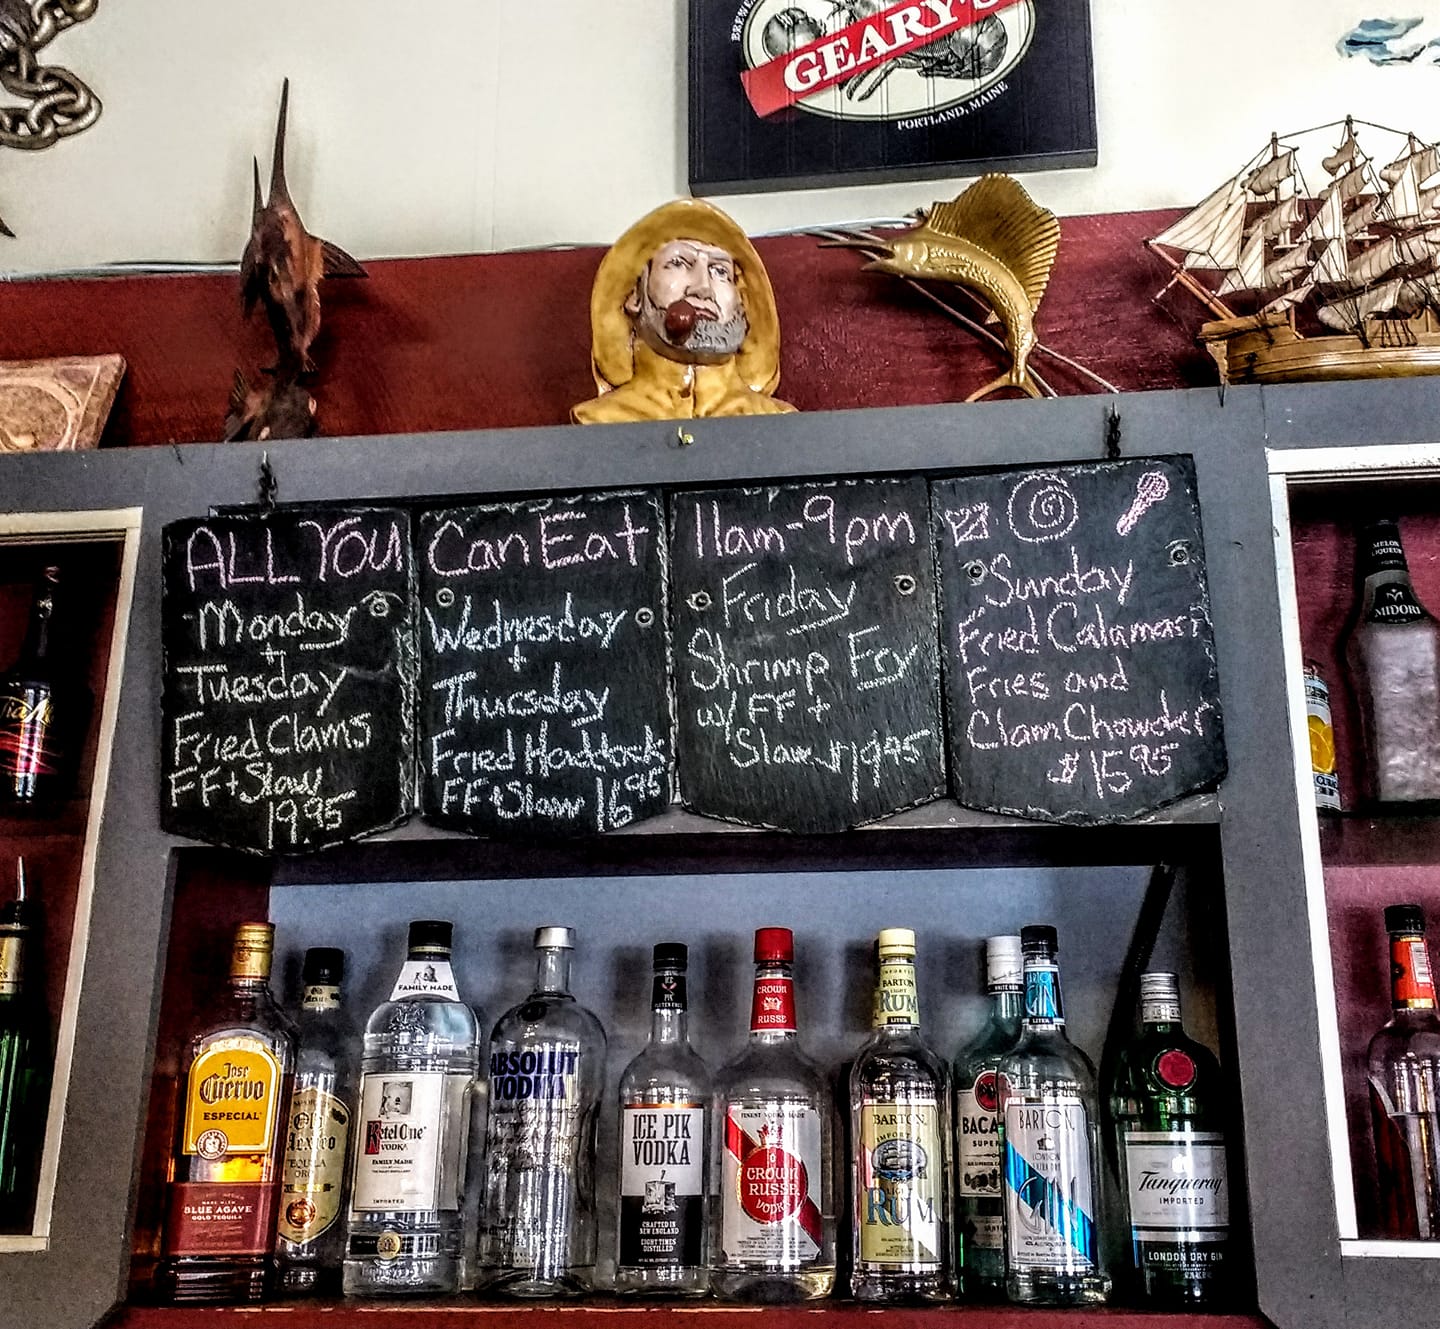 GEARY'S
PORTLAND, MAINE
ALL YOU Can Eat 11am-9pm
Monday
+
Tuesday
Fried Clams
FF+Slaw
19.95
Wednesday
+
Thursday
Fried Haddock
FF+Slaw 16.95
Friday
Shrimp Fry
w/ FF +
Slaw $19.95
Sunday
Fried Calamari
Fries and
Clam Chowder
$15.95
MELON
LIQUEUR
MIDORI
Jose
Cuervo
ESPECIAL
MADE WITH
BLUE AGAVE
GOLD TEQUILA
Old
Mexico
TEQUILA
FAMILY MADE
Ketel One
VODKA
FAMILY MADE
IMPORTED
ABSOLUT
VODKA
ICE PIK
VODKA
CRAFTED IN
NEW ENGLAND
EIGHT TIMES
DISTILLED
CROWN
RUSSE
FINEST VODKA MADE
CROWN
RUSSE
VODKA
BARTON
LIGHT
RUM
LITER
BARTON
IMPORTED
RUM
WHITE RUM
BACA
SUPER
GIN
LITER
BARTON
LONDON
EXTRA DRY
GIN
Tanqueray
IMPORTED
LONDON DRY GIN